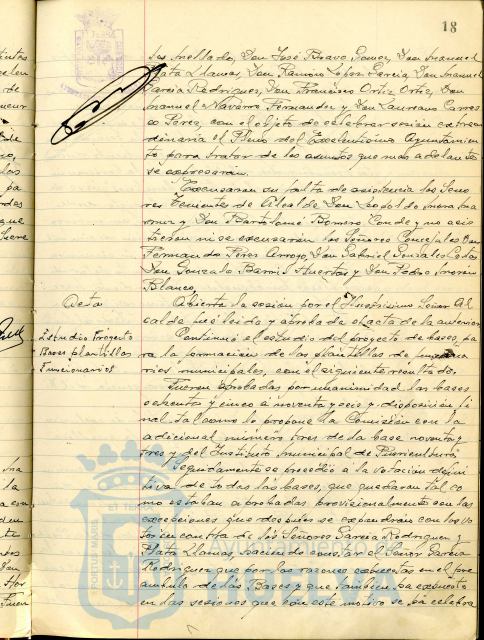 18
tes Mellado, Don José Bravo Gomez, Don Manuel
Plata Llamas, Don Ramon Lopez Garcia, Don Manuel
Garcia Rodriguez, Don Francisco Ortiz Ortiz, Don
Manuel Navarro Fernandez y Don Laureano Carras
co Perez, con el objeto de celebrar sesión extraor
dinaria el Pleno del Excelentísimo Ayuntamien
to para tratar de los asuntos que más adelante
se expresarán.
Excusaron su falta de asistencia los Seño
res Tenientes de Alcalde Don
y Don Bartolomé Romero Conde y no asis
tieron ni se excusaron los Señores Concejales Don
Fernando Perez Arroyo, Don Gabriel Gonzalez
Don Gonzalo Barrio Huertas y Don Pedro Moreno
Blanco,
Acta
Abierta la sesión por el Ilustrísimo Señor Al
calde fué leída y aprobada el acta de la anterior
Estudio Proyecto
Bases plantillas
Funcionarios
Continuó el estudio del proyecto de bases pa
ra la formación de las plantillas de funciona
rios municipales, con el siguiente resultado.
Fueron aprobadas por unanimidad las bases
ochenta y cinco a noventa y ocho y disposición fi
nal tal como lo propone la Comisión con la
adicional número tres de la base noventa y
tres y del Instituto municipal de Puericultura
Seguidamente se procedió a la votación defini
tiva de todas las bases, que quedaron tal co
mo estaban aprobadas provisionalmente con las
excepciones que después se expondrán con los vo
tos en contra de los Señores Garcia Rodriguez y
Plata Llamas, haciendo constar el Señor Garcia
Rodriguez que por las razones expuestas en el pre
ambulo de las Bases y que tambien ha expuesto
en las sesiones que con este motivo se ha celebra